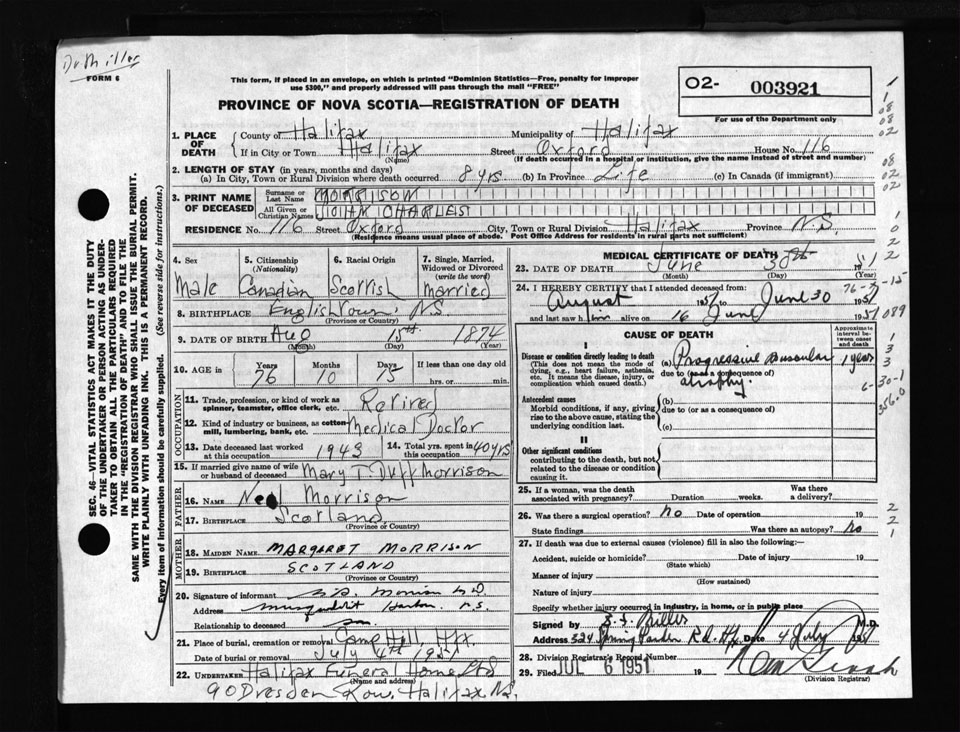 Dr Miller
FORM 6
This form, if placed in an envelope, on which is printed "Dominion Statistics—Free, penalty for improper
use $300," and properly addressed will pass through the mail "FREE"
PROVINCE OF NOVA SCOTIA—REGISTRATION OF DEATH
O2- 003921
For use of the Department only
1. PLACE OF DEATH County of Halifax Municipality of Halifax
If in City or Town Halifax Street Oxford House No. 116
(Name) (If death occurred in a hospital or institution, give the name instead of street and number)
2. LENGTH OF STAY (in years, months and days)
(a) In City, Town or Rural Division where death occurred 8 yrs (b) In Province Life (c) In Canada (if immigrant)
3. PRINT NAME OF DECEASED Surname or Last Name MORRISON
All Given or Christian Names JOHN CHARLES
RESIDENCE No. 116 Street Oxford City, Town or Rural Division Halifax Province N.S.
(Residence means usual place of abode. Post Office Address for residents in rural parts not sufficient)
4. Sex Male
5. Citizenship (Nationality) Canadian
6. Racial Origin Scottish
7. Single, Married, Widowed or Divorced (write the word) Married
8. BIRTHPLACE Englishtown, N.S.
(Province or Country)
9. DATE OF BIRTH Aug 15th 1874
(Month) (Day) (Year)
10. AGE in Years 76 Months 10 Days 15 If less than one day
hrs. or min.
OCCUPATION
11. Trade, profession, or kind of work as spinner, teamster, office clerk, etc. Retired
12. Kind of industry or business, as cotton-mill, lumbering, bank, etc. Medical Doctor
13. Date deceased last worked at this occupation 1943
14. Total yrs. spent in this occupation 40 yrs
15. If married give name of wife or husband of deceased Mary T Duff Morrison
FATHER
16. NAME Neil Morrison
17. BIRTHPLACE Scotland
(Province or Country)
MOTHER
18. MAIDEN NAME MARGARET MORRISON
19. BIRTHPLACE SCOTLAND
(Province or Country)
20. Signature of informant Morrison M.D.
Address Musquodoboit Harbour N.S.
Relationship to deceased son
21. Place of burial, cremation or removal Camp Hill, Hfx
Date of burial or removal July 4th 1951
22. UNDERTAKER Halifax Funeral Home Ltd
(Name and address)
90 Dresden Row, Halifax N.S.
MEDICAL CERTIFICATE OF DEATH
23. DATE OF DEATH June 30th 1951
(Month) (Day) (Year)
24. I HEREBY CERTIFY that I attended deceased from:
August 1951 to June 30 1951
and last saw him alive on 16 June 1951
CAUSE OF DEATH
Approximate interval between onset and death
I
Disease or condition directly leading to death
(This does not mean the mode of dying, e.g., heart failure, asthenia, etc. It means the disease, injury, or complication which caused death.)
(a) Progressive muscular 1 year
due to (or as a consequence of)
atrophy.
Antecedent causes
Morbid conditions, if any, giving rise to the above cause, stating the underlying condition last.
(b)
due to (or as a consequence of)
(c)
II
Other significant conditions
contributing to the death, but not related to the disease or condition causing it.
25. If a woman, was the death associated with pregnancy? Duration weeks. Was there a delivery?
26. Was there a surgical operation? no Date of operation 19
State findings Was there an autopsy? no
27. If death was due to external causes (violence) fill in also the following:—
Accident, suicide or homicide? Date of injury 19
(State which)
Manner of injury
(How sustained)
Nature of injury
Specify whether injury occurred in industry, in home, or in public place
Signed by Miller M.D.
Address 324 Spring Garden Rd. Hfx Date 4 July 1951
28. Division Registrar's Record Number
29. Filed JUL 6 1951 19
(Division Registrar)
SEC. 46—VITAL STATISTICS ACT MAKES IT THE DUTY
OF THE UNDERTAKER OR PERSON ACTING AS UNDER-
TAKER TO OBTAIN ALL THE PARTICULARS REQUIRED
IN THE "REGISTRATION OF DEATH" AND TO FILE THE
SAME WITH THE DIVISION REGISTRAR WHO SHALL ISSUE THE BURIAL PERMIT.
WRITE PLAINLY WITH UNFADING INK. THIS IS A PERMANENT RECORD.
Every item of information should be carefully supplied. (See reverse side for instructions.)
1
1
08
08
02
08
02
02
0
0
2
2
089
1
3
3
6-30-1
356.0
2
2
1